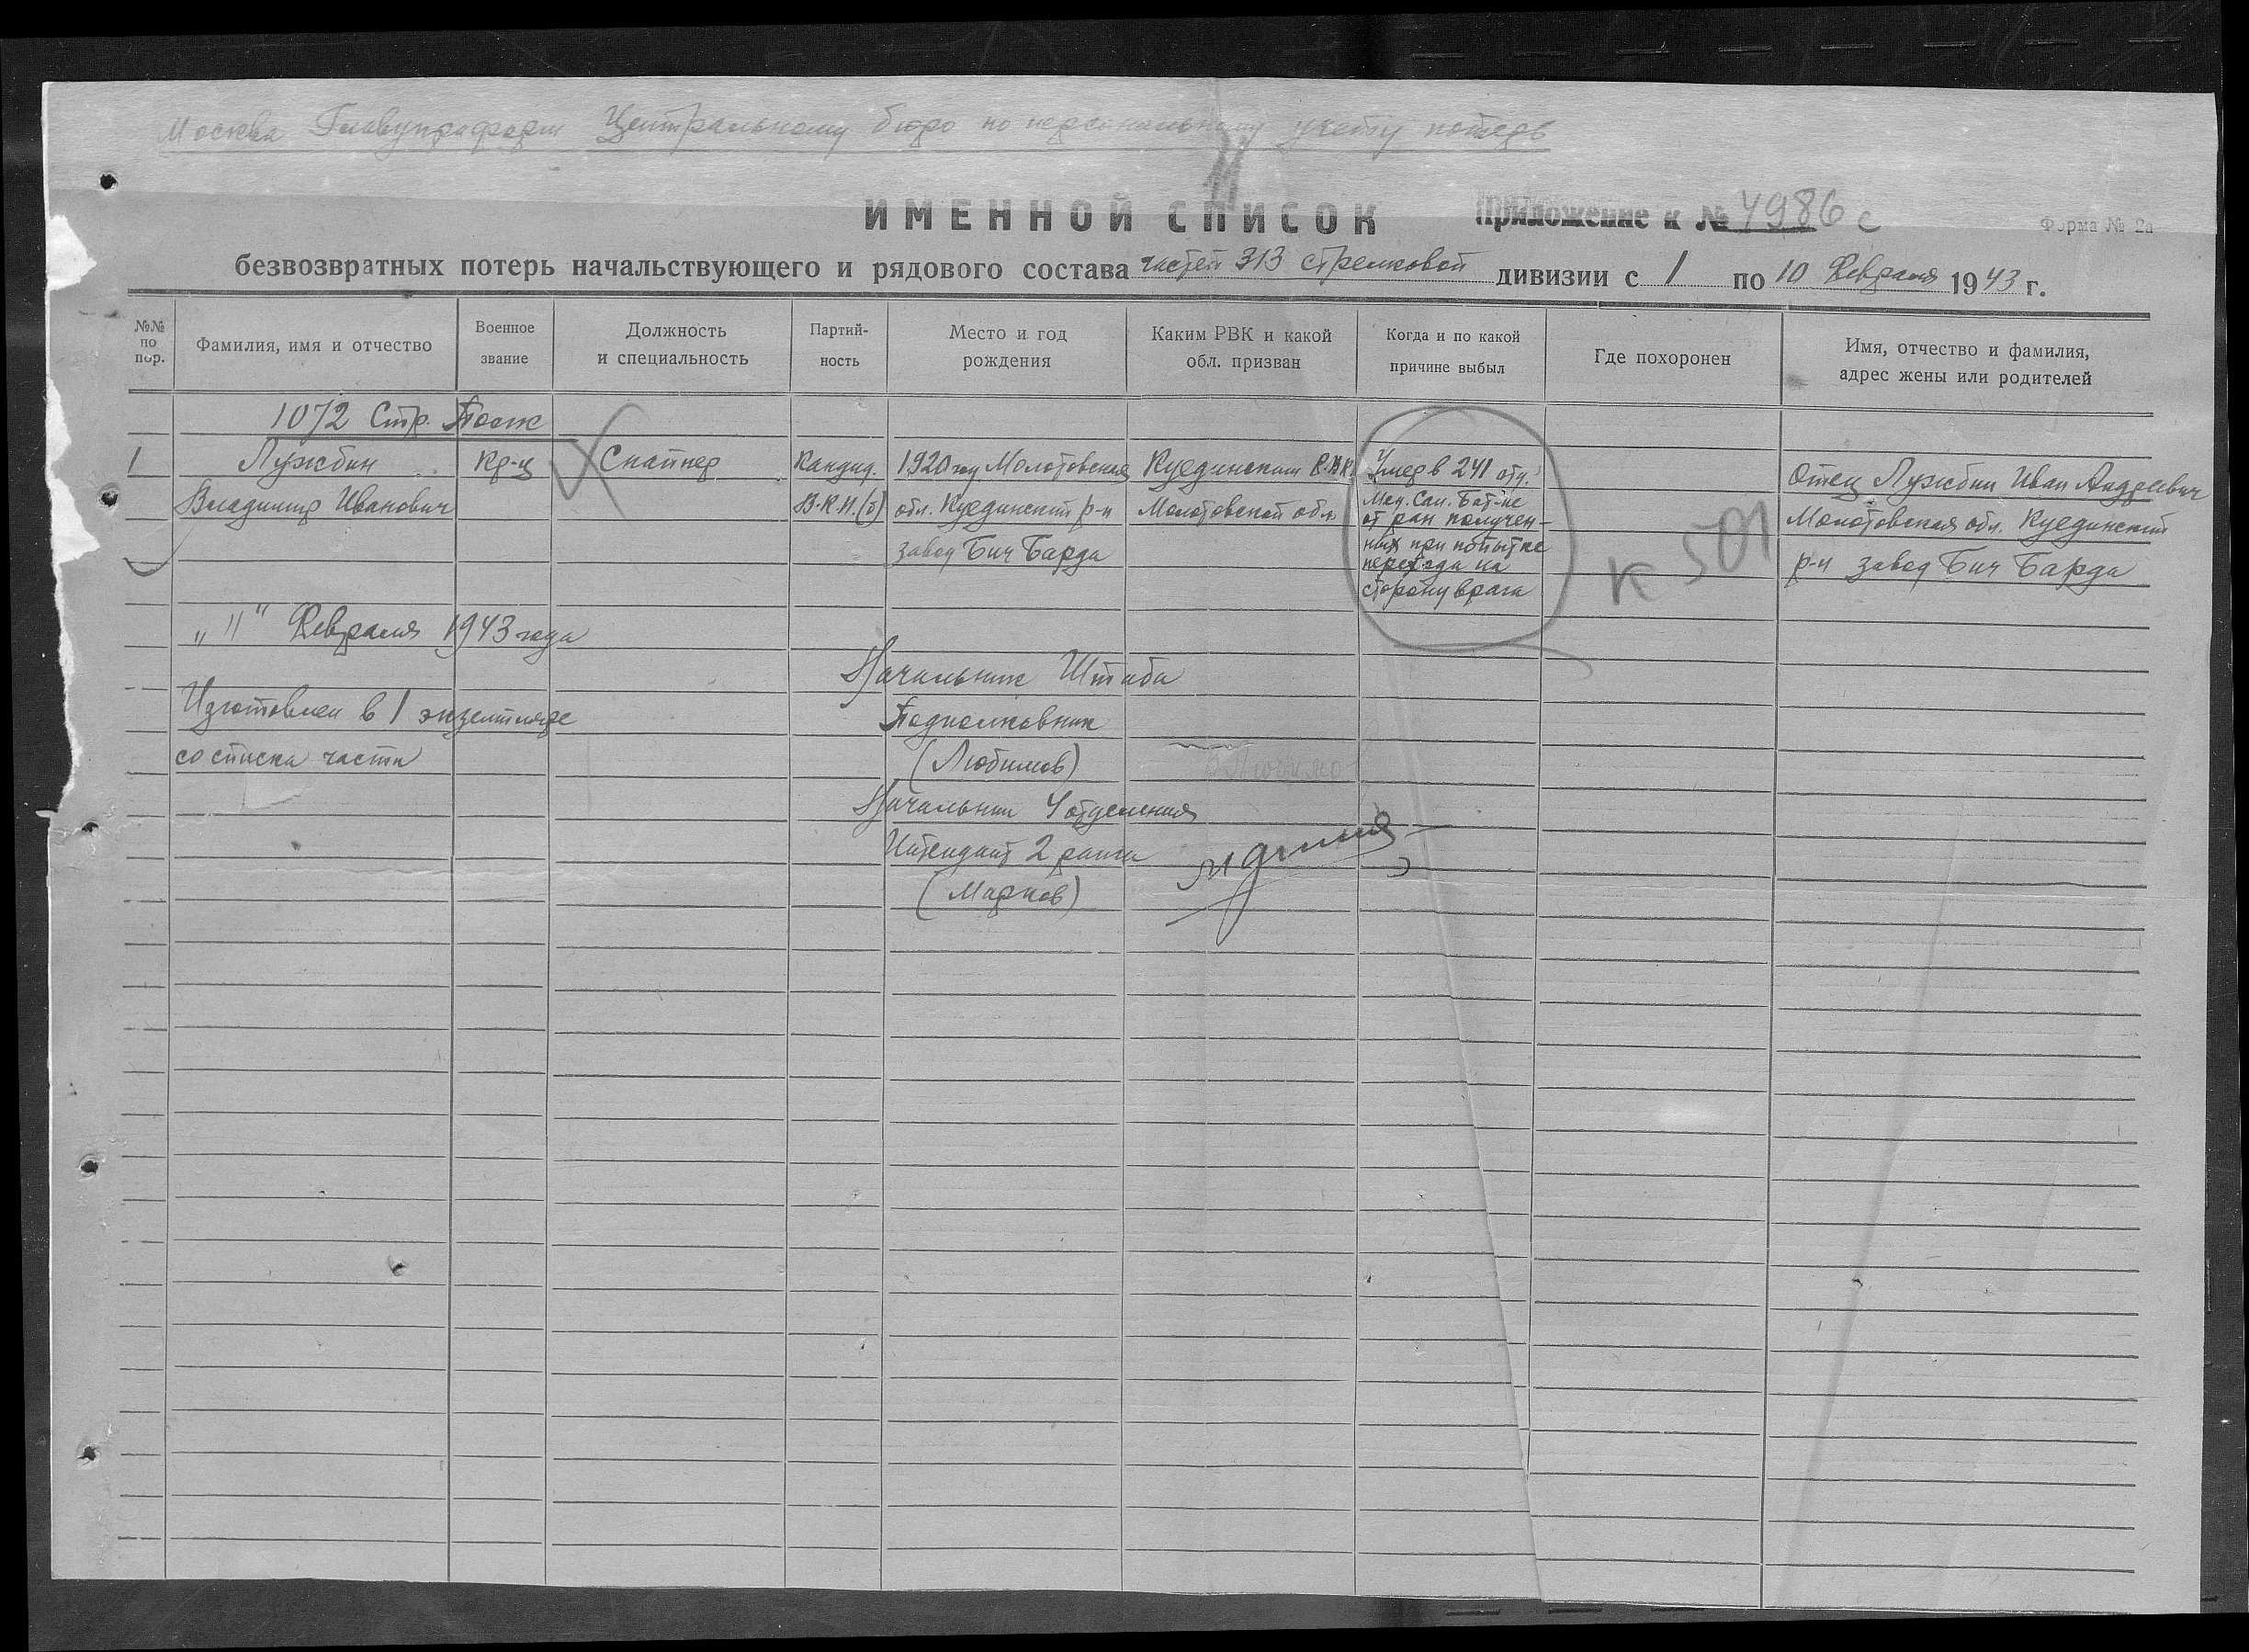 Москва Главупраформ Центральному бюро по персональному учету потерь
ИМЕННОЙ СПИСОК
Приложение к № 4986 с
Форма № 2а
безвозвратных потерь начальствующего и рядового состава частей 313 стрелковой дивизии с 1 по 10 Февраля 1943 г.
№№ по пор.
Фамилия, имя и отчество
Военное звание
Должность и специальность
Партий- ность
Место и год рождения
Каким РВК и какой обл. призван
Когда и по какой причине выбыл
Где похоронен
Имя, отчество и фамилия, адрес жены или родителей
1072 Стр. Полк
1
Лужбин
Владимир Иванович
Кр-ц
Снайпер
Кандид.
В.К.П.(б)
1920 год Молотовская
обл. Куединский р-н
завод Бич Барда
Куединским Р.В.К.
Молотовской обл.
Умер в 241 отд.
Мед. Сан. Бат-не
от ран получен-
ных при попытке
перехода на
сторону врага
К 501
Отец Лужбин Иван Андреевич
Молотовская обл. Куединский
р-н завод Бич Барда
„11" Февраля 1943 года
Изготовлен в 1 экземпляре
со списка части
Начальник Штаба
Подполковник
(Любимов)
Начальник 4 отделения
Интендант 2 ранга
(Марков)